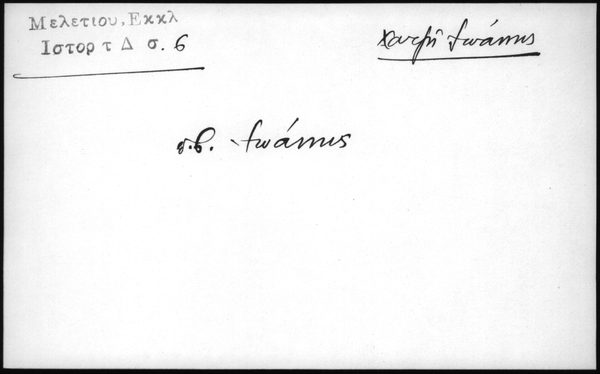 Μελετίου, Εκκλ
Ιστορ τ Δ σ. 6
Χατζῆ Ἰωάννης
σ.β. Ἰωάννης